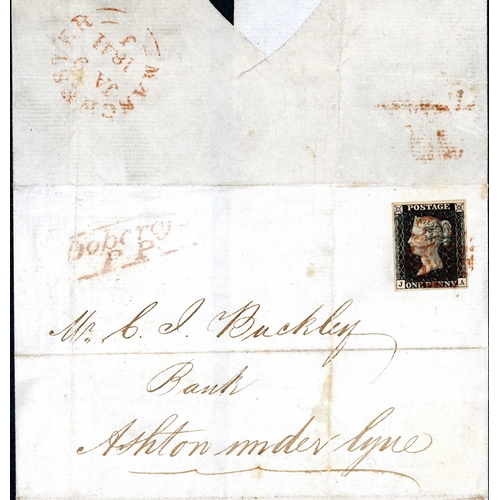 MANCHESTER
JA 9
1841
J
Dobcross
P.P
POSTAGE
J ONE PENNY. A
Mr. C. J. Buckley
Bank
Ashton under Lyne